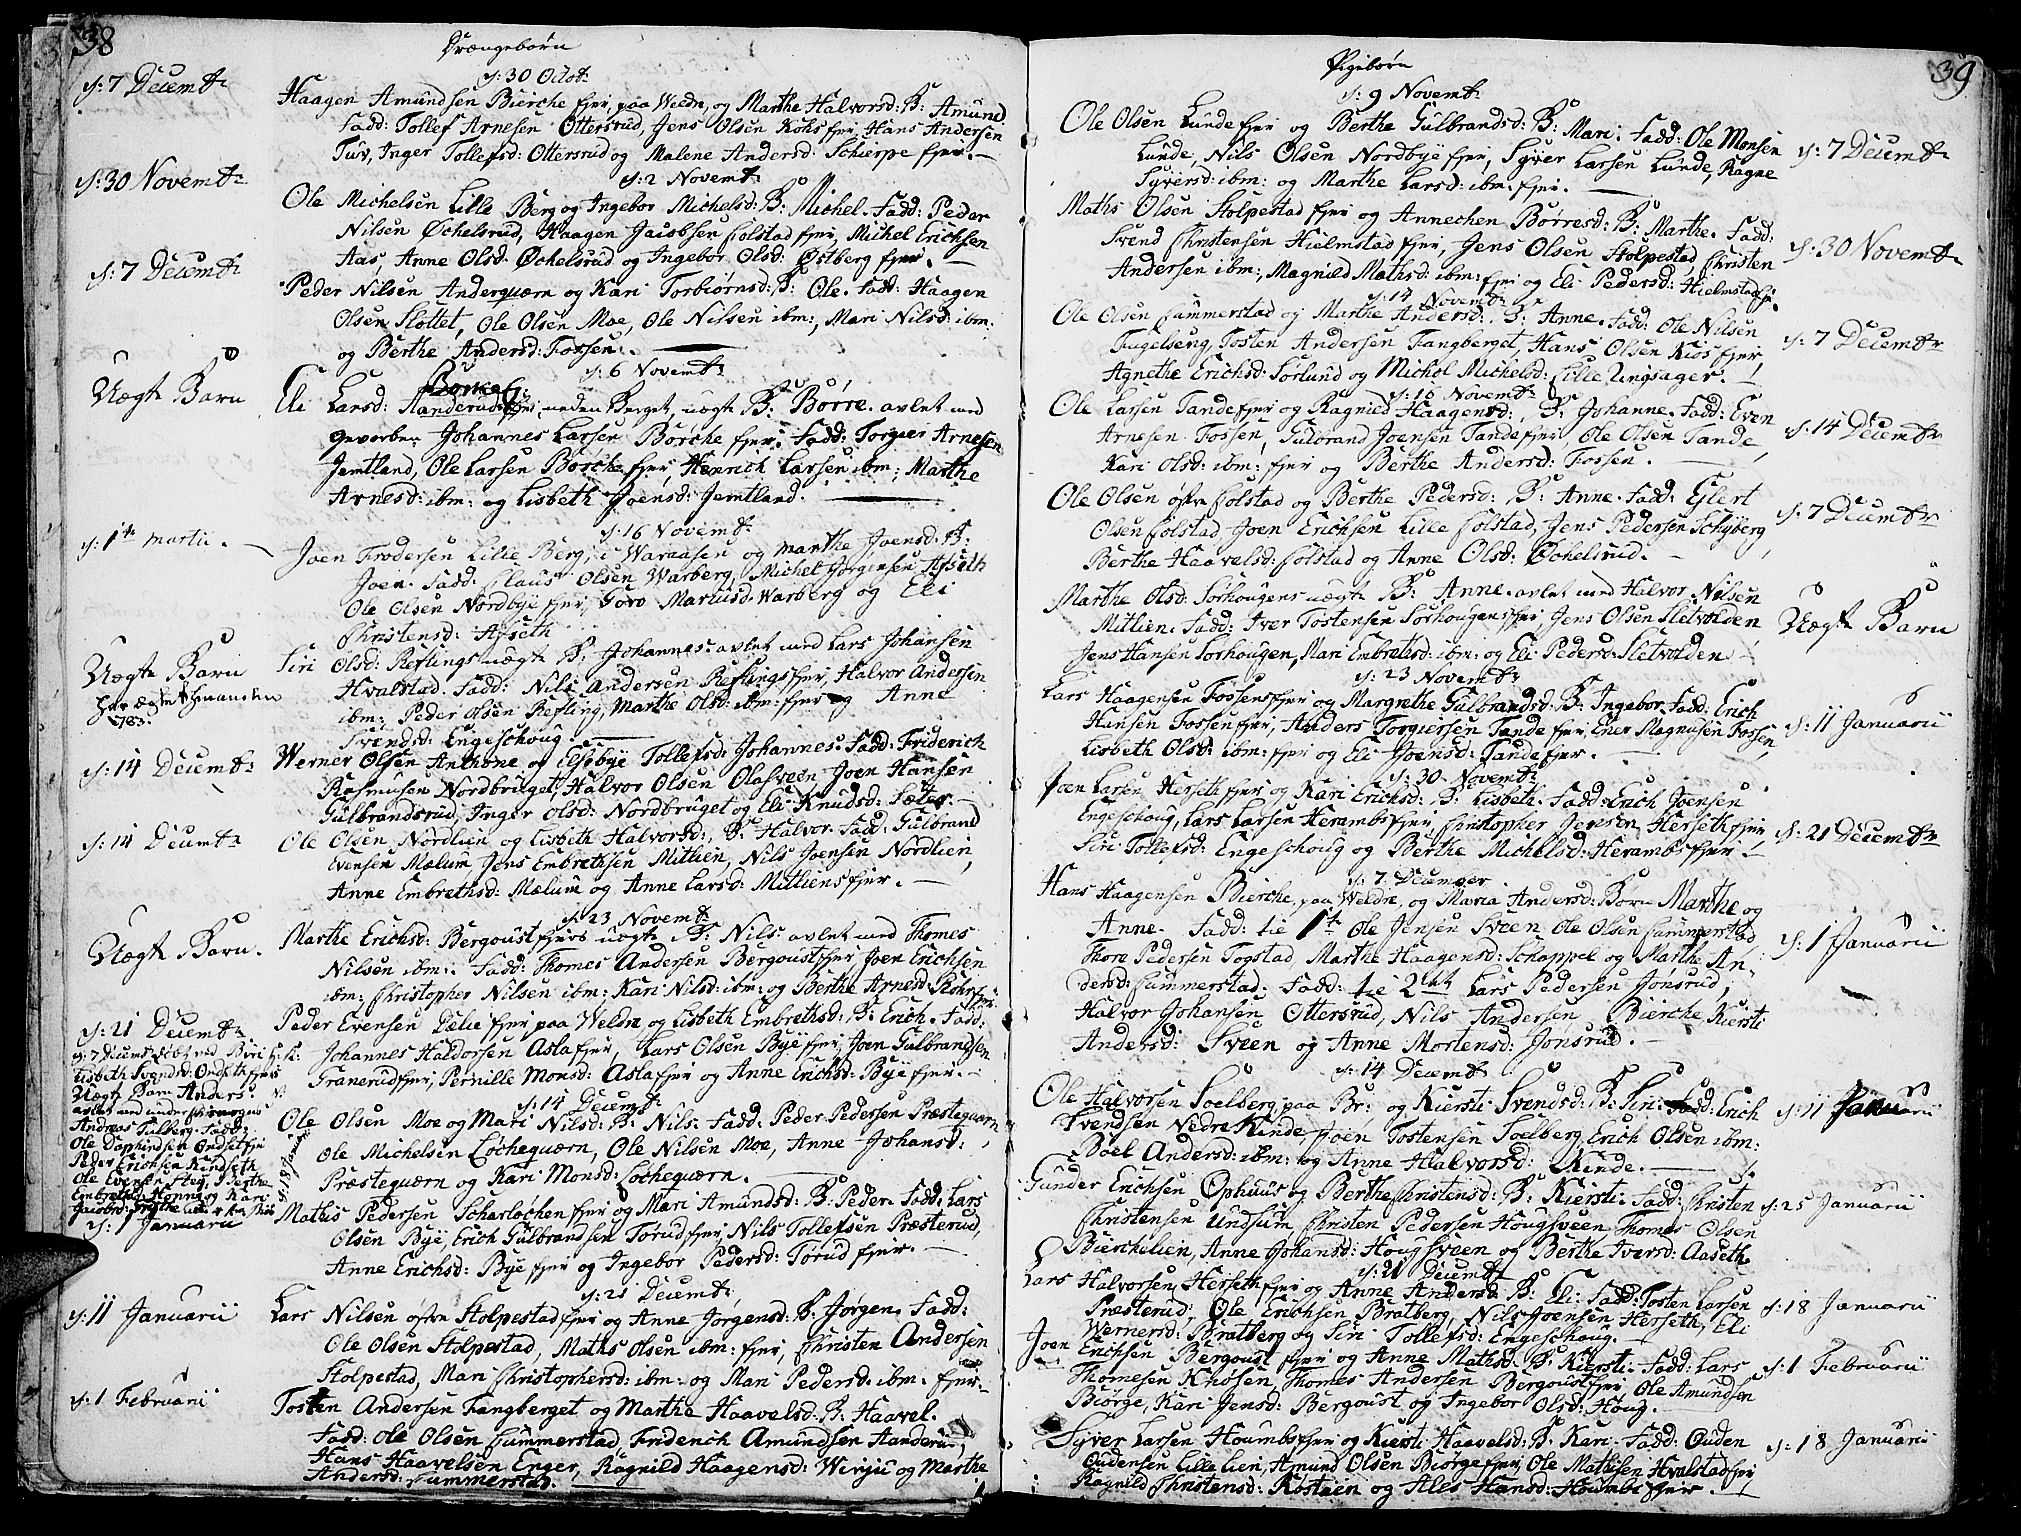 38
Drængebørn
d: 30 Octobr
d: 7 Decembr
Haagen Amundsen Bierche fjer, paa Weldr, og Marthe Halvorsd: B: Amund
Fadd: Tollef Arnesen Ottersrud, Jens Olsen Kohs fjer, Hans Andersen
Tuv, Inger Tollefsd: Ottersrud og Malene Andersd: Schierpe fjer.
d: 2 Novembr
d: 30 Novembr
Ole Michelsen Lille Berg og Ingebor Michelsd: B: Michel. Fadd: Peder
Nilsen Øchelsrud, Haagen Jacobsen Colstad fjer, Michel Erichsen
Aas, Anne Olsd: Øchelsrud og Ingebor Olsd: Østberg fjer.
d: 7 Decembr
Peder Nilsen Anderquærn og Kari Torbiørnsd: B: Ole. Fadd: Haagen
Olsen Slottet, Ole Olsen Moe, Ole Nilsen ibm:, Mari Nilsd: ibm:
og Berthe Andersd: Fossen.
d: 6 Novembr
Uægte Barn
Eli Larsd: Aanderud fjer, neden Berget, uægte B: Børre. avlet med
gevorben Johannes Larsen Børche fjer. Fadd: Torgier Arnesen
Jemtland, Ole Larsen Børche fjer, Henrich Larsen ibm:, Marthe
Arnesd: ibm: og Lisbeth Joensd: Jemtland.
d: 16 Novembr
d: 1te Martii.
Joen Frodersen Lille Berg, i Waraasen og Marthe Joensd: B:
Joen. Fadd: Claus Olsen Warberg, Michel Jørgensen Afseth
Ole Olsen Nordbye fjer, Goro Mariusd: Warberg og Eli
Christensd: Afseth
Uægte Barn
Siri Olsd: Reflings uægte B: Johannes: avlet med Lars Johansen
Hvalstad. Fadd: Nils Andersen Reflings fjer, Halvor Andersen
ibm:, Peder Olsen Refling, Marthe Olsd: ibm: fjer og Anne
Svendsd: Engeschoug.
d: 14 Decembr
Werner Olsen Anthone og Elsebye Tollefsd: Johannes. Fadd: Friderich
Rasmusen Nordbruget, Halvor Olsen Olasveen, Joen Hansen
Gulbrandsrud, Inger Olsd: Nordbruget og Eli Knudsd: Sæter.
d: 14 Decembr
Ole Olsen Nordlien og Lisbeth Halvorsd:, B: Halvor. Fadd: Gulbrand
Evensen Mælum, Jens Embrethsen Mitlien, Nils Joensen Nordlien,
Anne Embrethsd: Mælum og Anne Larsd: Mitliens fjer.
d: 23 Novembr
Uægte Barn.
Marthe Erichsd: Bergoust fjers uægte B: Nils. avlet med Thomes
Nilsen ibm:. Fadd: Thomes Andersen Bergoust fjer, Joen Erichsen
ibm:, Christopher Nilsen ibm: Kari Nilsd: ibm: og Berthe Arnesd: Rohr fjer
d: 21 Decembr
Peder Evensen Delie fjer paa Weldre og Lisbeth Embrethsd: B: Erich. Fadd:
Johannes Haldorsen Asla fjer, Lars Olsen Bye fjer, Joen Gulbrandsen
Granerud fjer, Pernille Monsd: Asla fjer og Anne Erichsd: Bye fjer.
Lisbeth Svendsd: Ondseth fjer
Uægte Barn Anders.
Ole Dophindsen Ondset fjer
Peder Erichsen Kindseth
Ole Evensen Steg, Berthe
d: 14 Decembr
d: 18 Januarii
Ole Olsen Moe og Mari Nilsd: B: Nils. Fadd: Peder Pedersen Præstequærn,
Ole Michelsen Løchequærn, Ole Nilsen Moe, Anne Johansd:
Præstequærn og Kari Monsd: Løchequærn.
d: 1 Januarii
Mathis Pedersen Scharløchen fjer og Mari Amundsd: B: Peder. Fadd: Lars
Olsen Bye, Erich Gulbrandsen Torud fjer, Nils Tollefsen Præsterud,
Anne Erichsd: Bye fjer og Ingebor Pedersd: Torud fjer.
d: 21 Decembr
d: 11 Januarii
Lars Nilsen øfre Stolpestad fjer og Anne Jørgensd: B: Jørgen. Fadd:
Ole Olsen Stolpestad, Maths Olsen ibm: fjer, Christen Andersen
Stolpestad, Mari Christophersd: ibm: og Mari Pedersd: ibm: fjer.
d: 1 Februarii
Tosten Andersen Fangberget og Marthe Haavelsd: B: Haavel.
Fadd: Ole Olsen Cummerstad, Friderich Amundsen Aanderud,
Hans Haavelsen Enger, Ragnild Haagensd: Wergie og Marthe
Andersd: Cummerstad.
39
Pigebørn
d: 9 Novembr
Ole Olsen Lunde fjer og Berthe Gulbrandsd: B: Mari. Fadd: Ole Monsen
Lunde, Nils Olsen Nordbye fjer, Syver Larsen Lunde, Ragne
Syversd: ibm: og Marthe Larsd: ibm: fjer.
d: 7 Decembr
Maths Olsen Stolpestad fjer og Annechen Børresd: B: Marthe. Fadd:
Svend Christensen Hielmstad fjer, Jens Olsen Stolpestad, Christen
Andersen ibm:, Magnild Mathsd: ibm: fjer og Eli Pedersd: Hielmstad fjer.
d: 30 Novembr
d: 14 Novembr
Ole Olsen Cummerstad og Marthe Andersd: B: Anne. Fadd: Ole Nilsen
Fugelseng, Tosten Andersen Fangberget, Hans Olsen Kios fjer,
Agnethe Erichsd: Sørlund og Michel Michelsd: Lille Ringsager.
d: 7 Decembr
d: 16 Novembr
Ole Larsen Tande fjer og Ragnild Haagensd: B: Johanne. Fadd: Even
Arnesen Fossen, Gulbrand Joensen Tande fjer, Ole Olsen Tande,
Kari Olsd: ibm: fjer og Berthe Andersd: Fossen.
d: 14 Decembr
Ole Olsen øfre Colstad og Berthe Pedersd: B: Anne. Fadd: Eylert
Olsen Colstad, Joen Erichsen Lille Colstad, Jens Pedersen Schyberg,
Berthe Haavelsd: Colstad og Anne Olsd: Øchelsrud.
d: 7 Decembr
Marthe Olsd: Sorhougens uægte B: Anne. avlet med Halvor Nilsen
Mitlien. Fadd: Iver Tostensen Sorhougens fjer, Jens Olsen Sletvolden
Jens Hansen Sorhougen, Mari Embretsd: ibm: og Eli Pedersd: Sletvolden
Uægte Barn
d: 23 Novembr
Lars Haagensen Fossens fjer og Margrethe Gulbrandsd: B: Ingebor. Fadd: Erich
Hansen Fossen fjer, Anders Torgiersen Tande fjer, Ener Magnusen Fossen,
Lisbeth Olsd: ibm: fjer og Eli Joensd: Tande fjer.
d: 11 Januarii
d: 30 Novembr
Joen Larsen Herseth fjer og Kari Erichsd: B: Lisbeth. Fadd: Erich Joensen
Engeschoug, Lars Larsen Herambs fjer, Christopher Jensen Herseth fjer,
Siri Tollefsd: Engeschoug og Berthe Michelsd: Herambs fjer.
d: 21 Decembr
d: 7 December
Hans Haagensen Bierche, paa Weldre, og Maria Andersd: Børn Marthe og
Anne. Fadd: til 1te Ole Jensen Sveen, Ole Olsen Cummerstad
Thore Pedersen Togstad, Marthe Haagensd: Schappel og Marthe An-
dersd: Cummerstad. Fadd: til 2det Lars Pedersen Jonsrud,
Halvor Johansen Ottersrud, Nils Andersen Bierche, Kiersti
Andersd: Sveen og Anne Mortensd: Jonsrud.
d: 1 Januarii
d: 14 Decembr
Ole Halvorsen Soelberg paa Br: og Kiersti Svendsd: B: Siri. Fadd: Erich
Svendsen Nedre Kinde, Joen Tostensen Soelberg, Erich Olsen ibm:
Boel Andersd: ibm: og Anne Halvorsd: Kinde.
d: 11 Januarii
Gunder Erichsen Ophuus og Berthe Christensd: B: Kiersti. Fadd: Christen
Christensen Undsum, Christen Pedersen Hougsveen, Thomas Olsen
Bierchelien, Anne Johansd: Hougsveen og Berthe Iversd: Aaseth
d: 25 Januarii
d: 21 Decembr
Lars Halvorsen Herseth fjer og Anne Andersd: B: Eli. Fadd: Tosten Larsen
Præsterud, Ole Erichsen Bratberg, Nils Joensen Herseth, Eli
Wernersd: Bratberg og Siri Tollefsd: Engeschoug.
d: 18 Januarii
Joen Erichsen Bergoust fjer og Anne Mathsd: B: Kiersti. Fadd: Lars
Thomesen Knosen, Thomes Andersen Bergoust fjer, Ole Amundsen
Biørge, Kari Jensd: Bergoust og Ingebor Olsd: Houg.
d: 1 Februarii
Syver Larsen Houmbs fjer og Kiersti Haavelsd: B: Kari. Fadd: Ouden
Oudensen Lille Lien, Amund Olsen Biørge fjer, Ole Mathisen Hvalstad fjer,
Ragnild Christensd: Kostøen og Ales Hansd: Houmbs fjer.
d: 18 Januarii